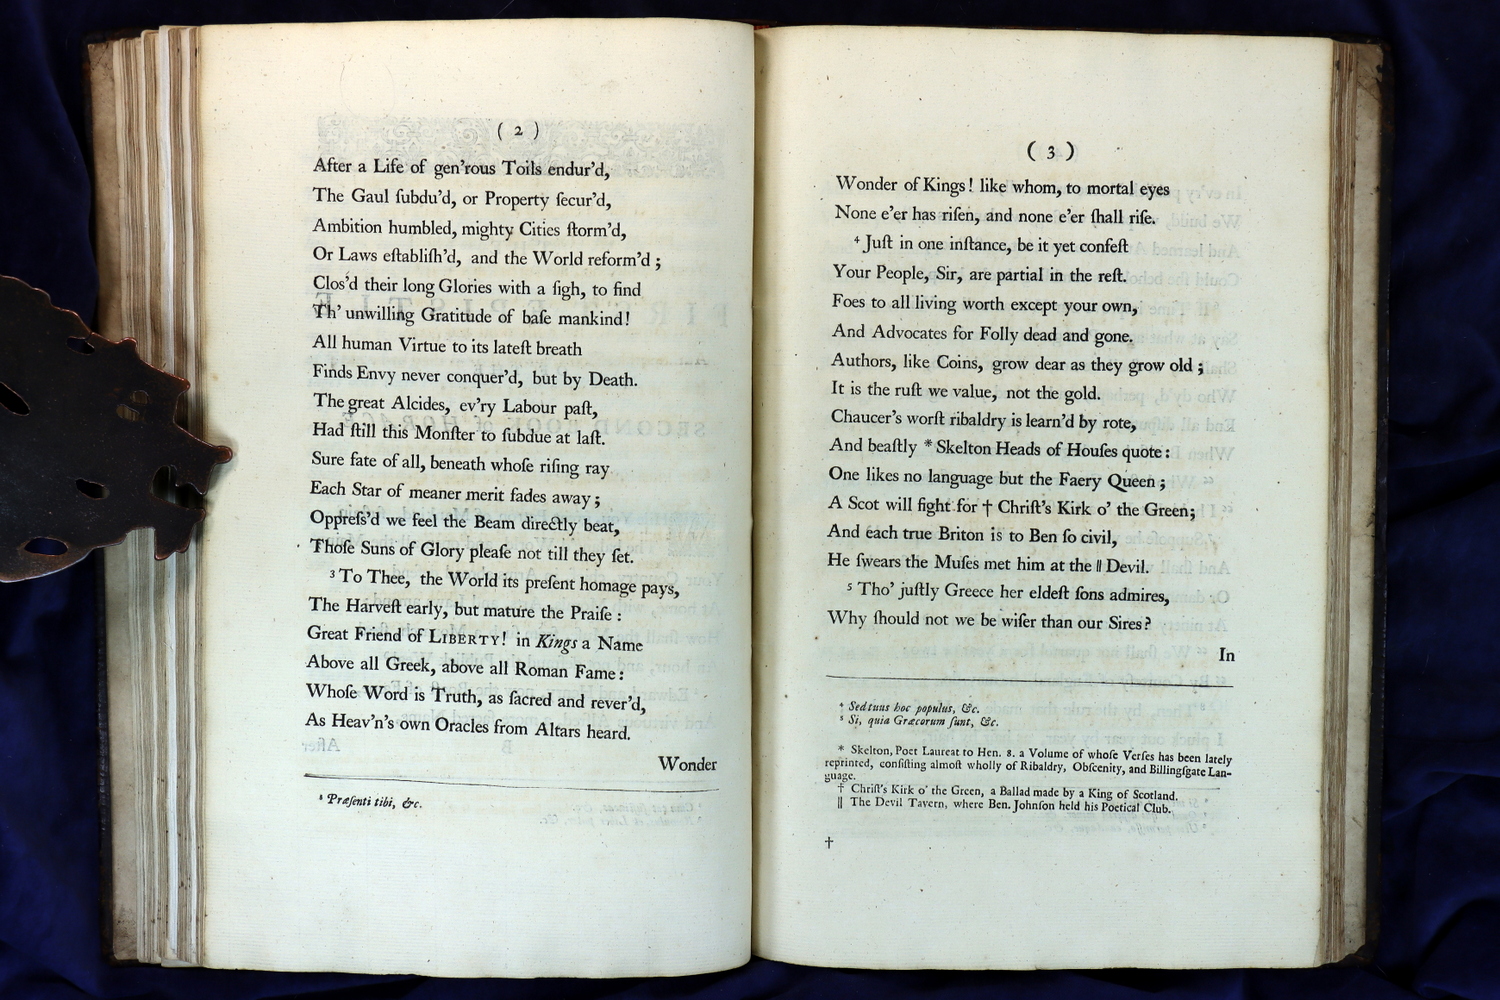 ( 2 )
After a Life of gen'rous Toils endur'd,
The Gaul ſubdu'd, or Property ſecur'd,
Ambition humbled, mighty Cities ſtorm'd,
Or Laws eſtabliſh'd, and the World reform'd ;
Clos'd their long Glories with a ſigh, to find
Th' unwilling Gratitude of baſe mankind!
All human Virtue to its lateſt breath
Finds Envy never conquer'd, but by Death.
The great Alcides, ev'ry Labour paſt,
Had ſtill this Monſter to ſubdue at laſt.
Sure fate of all, beneath whoſe riſing ray
Each Star of meaner merit fades away ;
Oppreſs'd we feel the Beam directly beat,
Thoſe Suns of Glory pleaſe not till they ſet.
³ To Thee, the World its preſent homage pays,
The Harveſt early, but mature the Praiſe :
Great Friend of LIBERTY! in Kings a Name
Above all Greek, above all Roman Fame :
Whoſe Word is Truth, as ſacred and rever'd,
As Heav'n's own Oracles from Altars heard.
Wonder
³ Præſenti tibi, &c.
( 3 )
Wonder of Kings! like whom, to mortal eyes
None e'er has riſen, and none e'er ſhall riſe.
⁴ Juſt in one inſtance, be it yet confeſt
Your People, Sir, are partial in the reſt.
Foes to all living worth except your own,
And Advocates for Folly dead and gone.
Authors, like Coins, grow dear as they grow old ;
It is the ruſt we value, not the gold.
Chaucer's worſt ribaldry is learn'd by rote,
And beaſtly * Skelton Heads of Houſes quote :
One likes no language but the Faery Queen ;
A Scot will fight for † Chriſt's Kirk o' the Green;
And each true Briton is to Ben ſo civil,
He ſwears the Muſes met him at the ‖ Devil.
⁵ Tho' juſtly Greece her eldeſt ſons admires,
Why ſhould not we be wiſer than our Sires?
In
⁴ Sed tuus hoc populus, &c.
⁵ Si, quia Græcorum ſunt, &c.
* Skelton, Poet Laureat to Hen. 8. a Volume of whoſe Verſes has been lately
reprinted, conſiſting almoſt wholly of Ribaldry, Obſcenity, and Billingſgate Lan-
guage.
† Chriſt's Kirk o' the Green, a Ballad made by a King of Scotland.
‖ The Devil Tavern, where Ben. Johnſon held his Poetical Club.
†